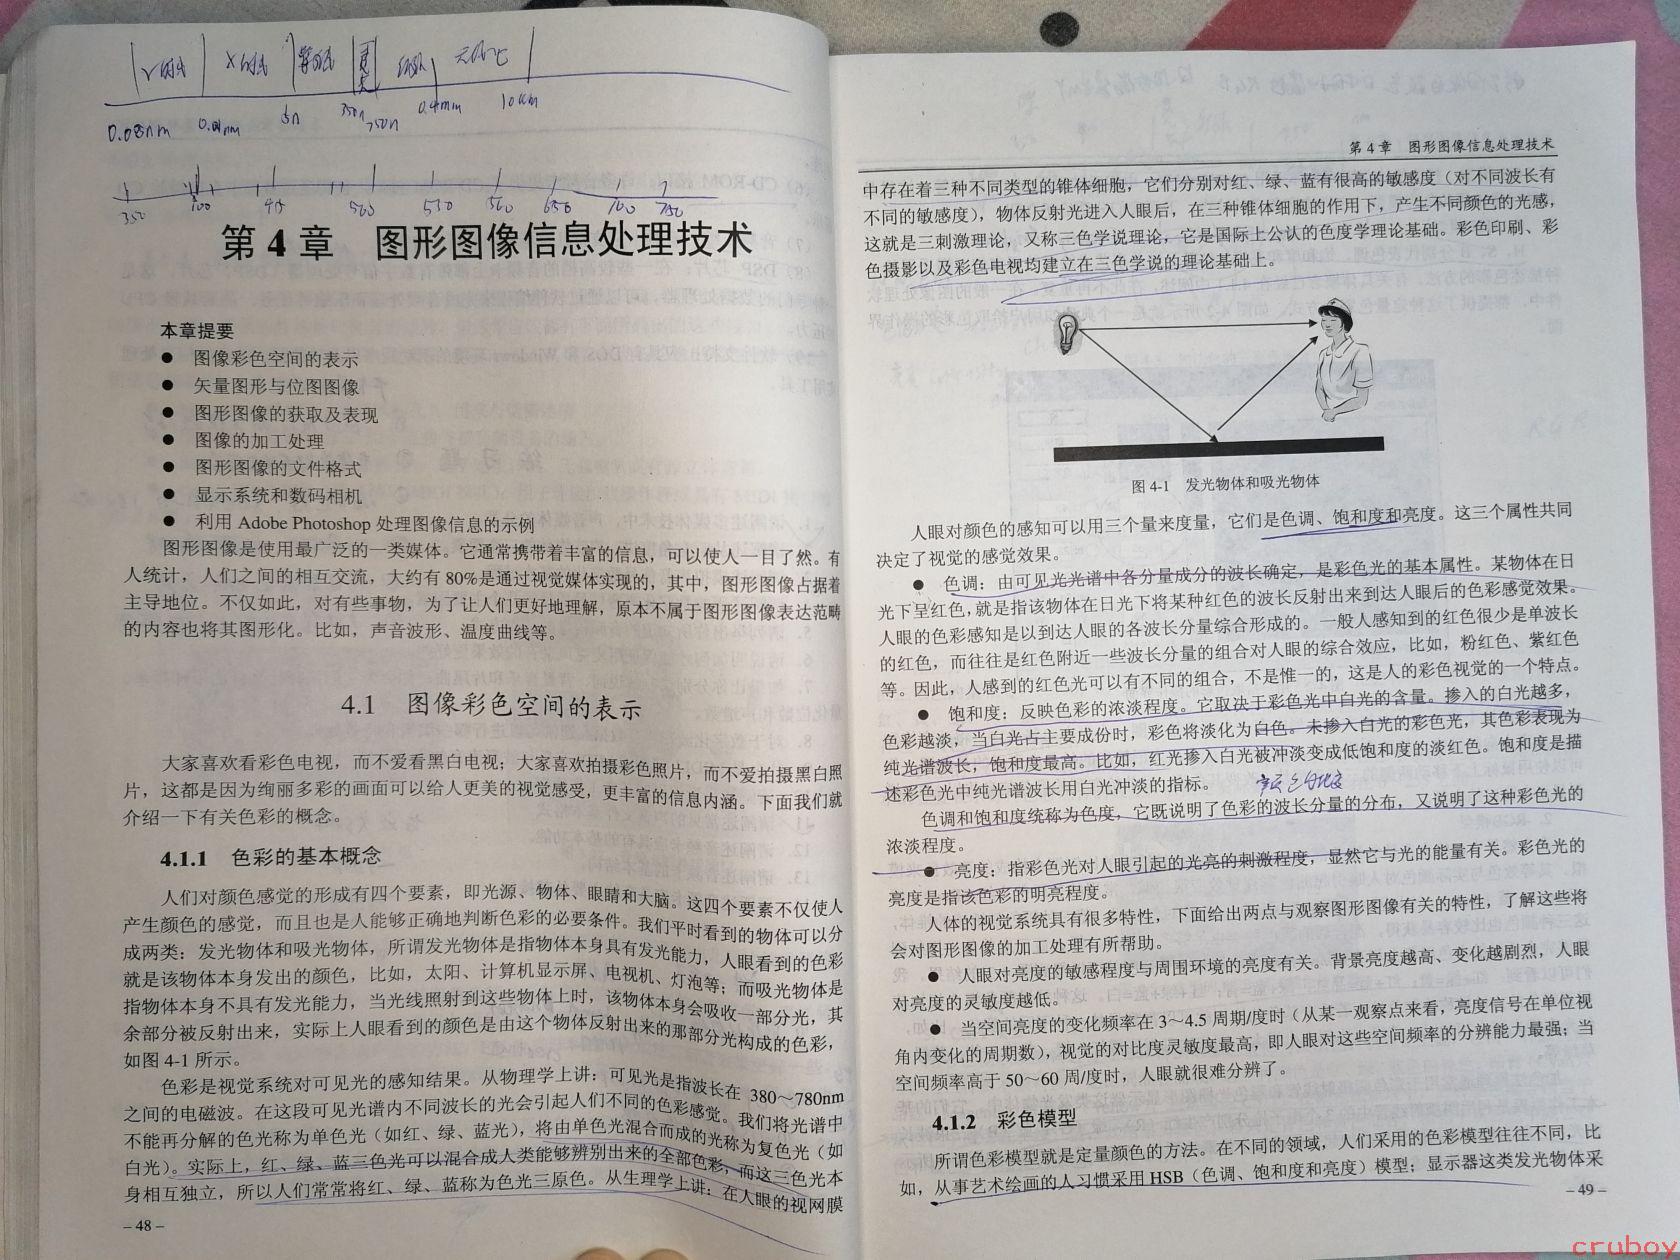 γ射线 X射线 紫外线 可见光 红外 无线电
0.03nm 0.01nm 5n 350n 750n 0.4mm 10km
350 400 45 500 550 560 650 700 750
第 4 章 图形图像信息处理技术
本章提要
● 图像彩色空间的表示
● 矢量图形与位图图像
● 图形图像的获取及表现
● 图像的加工处理
● 图形图像的文件格式
● 显示系统和数码相机
● 利用 Adobe Photoshop 处理图像信息的示例
图形图像是使用最广泛的一类媒体。它通常携带着丰富的信息，可以使人一目了然。有
人统计，人们之间的相互交流，大约有 80%是通过视觉媒体实现的，其中，图形图像占据着
主导地位。不仅如此，对有些事物，为了让人们更好地理解，原本不属于图形图像表达范畴
的内容也将其图形化。比如，声音波形、温度曲线等。
4.1 图像彩色空间的表示
大家喜欢看彩色电视，而不爱看黑白电视；大家喜欢拍摄彩色照片，而不爱拍摄黑白照
片，这都是因为绚丽多彩的画面可以给人更美的视觉感受，更丰富的信息内涵。下面我们就
介绍一下有关色彩的概念。
4.1.1 色彩的基本概念
人们对颜色感觉的形成有四个要素，即光源、物体、眼睛和大脑。这四个要素不仅使人
产生颜色的感觉，而且也是人能够正确地判断色彩的必要条件。我们平时看到的物体可以分
成两类：发光物体和吸光物体，所谓发光物体是指物体本身具有发光能力，人眼看到的色彩
就是该物体本身发出的颜色，比如，太阳、计算机显示屏、电视机、灯泡等；而吸光物体是
指物体本身不具有发光能力，当光线照射到这些物体上时，该物体本身会吸收一部分光，其
余部分被反射出来，实际上人眼看到的颜色是由这个物体反射出来的那部分光构成的色彩，
如图 4-1 所示。
色彩是视觉系统对可见光的感知结果。从物理学上讲：可见光是指波长在 380～780nm
之间的电磁波。在这段可见光谱内不同波长的光会引起人们不同的色彩感觉。我们将光谱中
不能再分解的色光称为单色光（如红、绿、蓝光），将由单色光混合而成的光称为复色光（如
白光）。实际上，红、绿、蓝三色光可以混合成人类能够辨别出来的全部色彩，而这三色光本
身相互独立，所以人们常常将红、绿、蓝称为色光三原色。从生理学上讲：在人眼的视网膜
– 48 –
第 4 章 图形图像信息处理技术
中存在着三种不同类型的锥体细胞，它们分别对红、绿、蓝有很高的敏感度（对不同波长有
不同的敏感度），物体反射光进入人眼后，在三种锥体细胞的作用下，产生不同颜色的光感，
这就是三刺激理论，又称三色学说理论，它是国际上公认的色度学理论基础。彩色印刷、彩
色摄影以及彩色电视均建立在三色学说的理论基础上。
图 4-1 发光物体和吸光物体
人眼对颜色的感知可以用三个量来度量，它们是色调、饱和度和亮度。这三个属性共同
决定了视觉的感觉效果。
● 色调：由可见光光谱中各分量成分的波长确定，是彩色光的基本属性。某物体在日
光下呈红色，就是指该物体在日光下将某种红色的波长反射出来到达人眼后的色彩感觉效果。
人眼的色彩感知是以到达人眼的各波长分量综合形成的。一般人感知到的红色很少是单波长
的红色，而往往是红色附近一些波长分量的组合对人眼的综合效应，比如，粉红色、紫红色
等。因此，人感到的红色光可以有不同的组合，不是惟一的，这是人的彩色视觉的一个特点。
● 饱和度：反映色彩的浓淡程度。它取决于彩色光中白光的含量。掺入的白光越多，
色彩越淡，当白光占主要成份时，彩色将淡化为白色。未掺入白光的彩色光，其色彩表现为
纯光谱波长，饱和度最高。比如，红光掺入白光被冲淡变成低饱和度的淡红色。饱和度是描
述彩色光中纯光谱波长用白光冲淡的指标。
色调和饱和度统称为色度，它既说明了色彩的波长分量的分布，又说明了这种彩色光的
浓淡程度。
● 亮度：指彩色光对人眼引起的光亮的刺激程度，显然它与光的能量有关。彩色光的
亮度是指该色彩的明亮程度。
人体的视觉系统具有很多特性，下面给出两点与观察图形图像有关的特性，了解这些将
会对图形图像的加工处理有所帮助。
● 人眼对亮度的敏感程度与周围环境的亮度有关。背景亮度越高、变化越剧烈，人眼
对亮度的灵敏度越低。
● 当空间亮度的变化频率在 3～4.5 周期/度时（从某一观察点来看，亮度信号在单位视
角内变化的周期数），视觉的对比度灵敏度最高，即人眼对这些空间频率的分辨能力最强；当
空间频率高于 50～60 周/度时，人眼就很难分辨了。
4.1.2 彩色模型
所谓色彩模型就是定量颜色的方法。在不同的领域，人们采用的色彩模型往往不同，比
如，从事艺术绘画的人习惯采用 HSB（色调、饱和度和亮度）模型；显示器这类发光物体采
– 49 –
cruboy